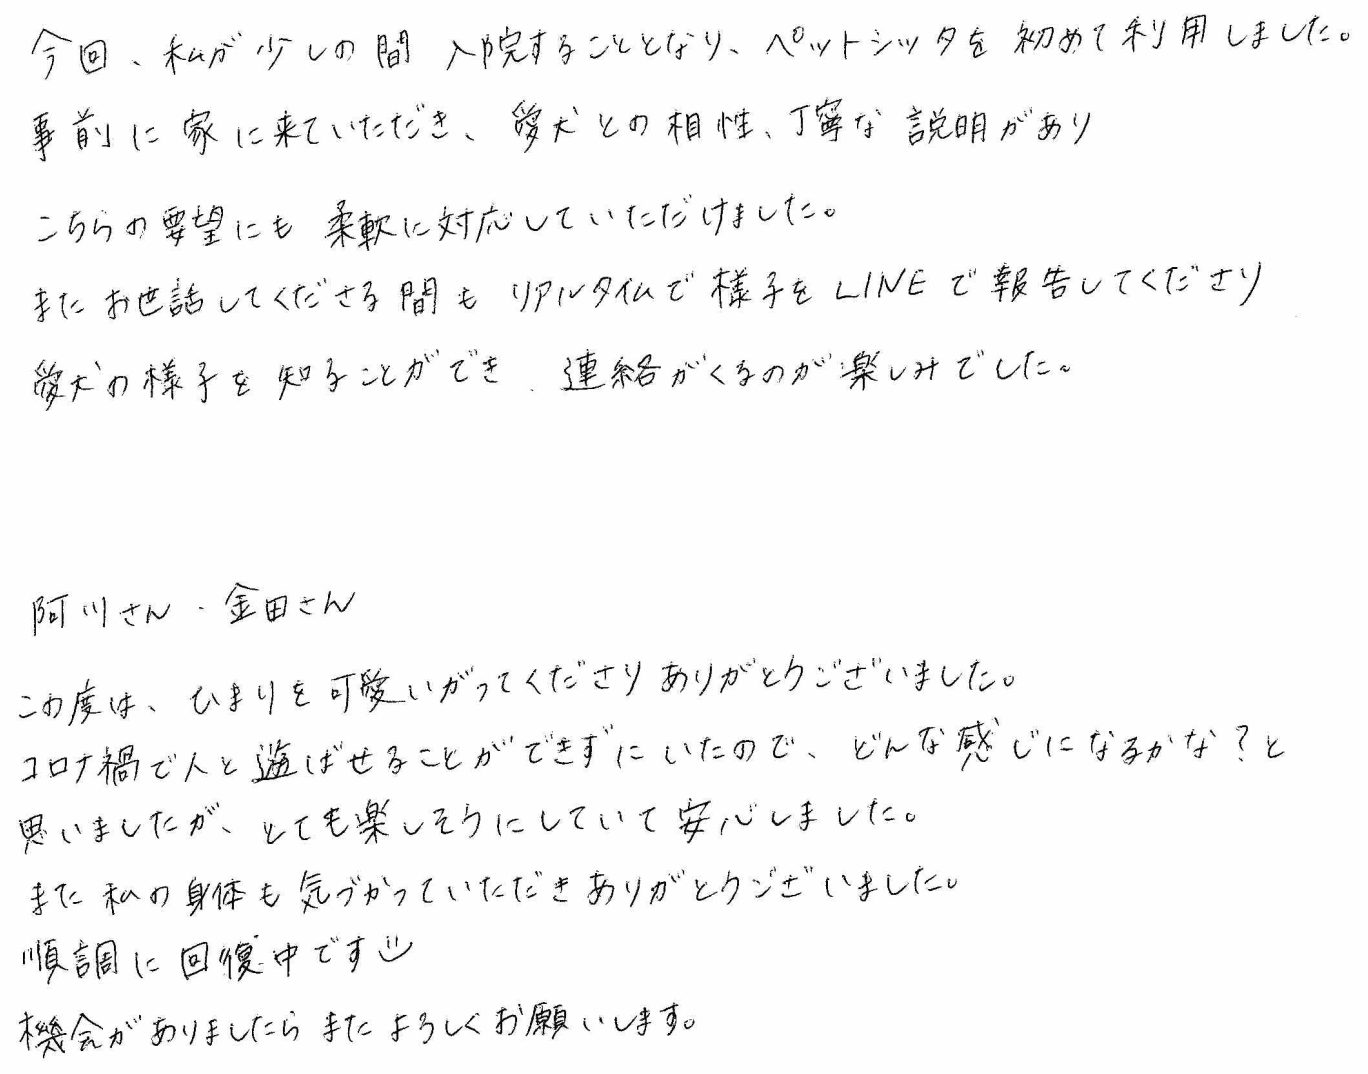 今回、私が少しの間 入院することとなり、ペットシッタを初めて利用しました。
事前に家に来ていただき、愛犬との相性、丁寧な説明があり
こちらの要望にも柔軟に対応していただけました。
またお世話してくださる間もリアルタイムで様子をLINEで報告してくださり
愛犬の様子を知ることができ、連絡がくるのが楽しみでした。
阿川さん・金田さん
この度は、ひまりを可愛いがってくださりありがとうございました。
コロナ禍で人と遊ばせることができずにいたので、どんな感じになるかな?と
思いましたが、とても楽しそうにしていて安心しました。
また私の身体も気づかっていただきありがとうございました。
順調に回復中です
機会がありましたらまたよろしくお願いします。